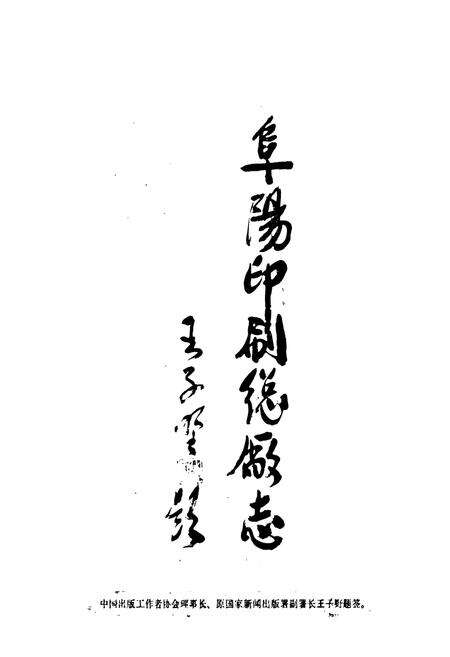 阜陽印刷總廠志
王子野題
中国出版工作者协会理事长、原国家新闻出版署副署长王子野题签。